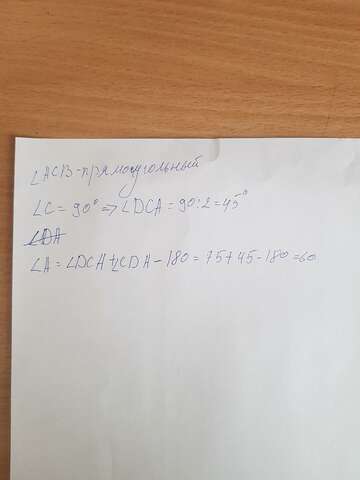 ∠ACB-прямоугольный
∠C = 90° => ∠DCA = 90:2 = 45°
∠DA
∠A = ∠DCA + ∠CDA - 180 = 75+45-180 = 60